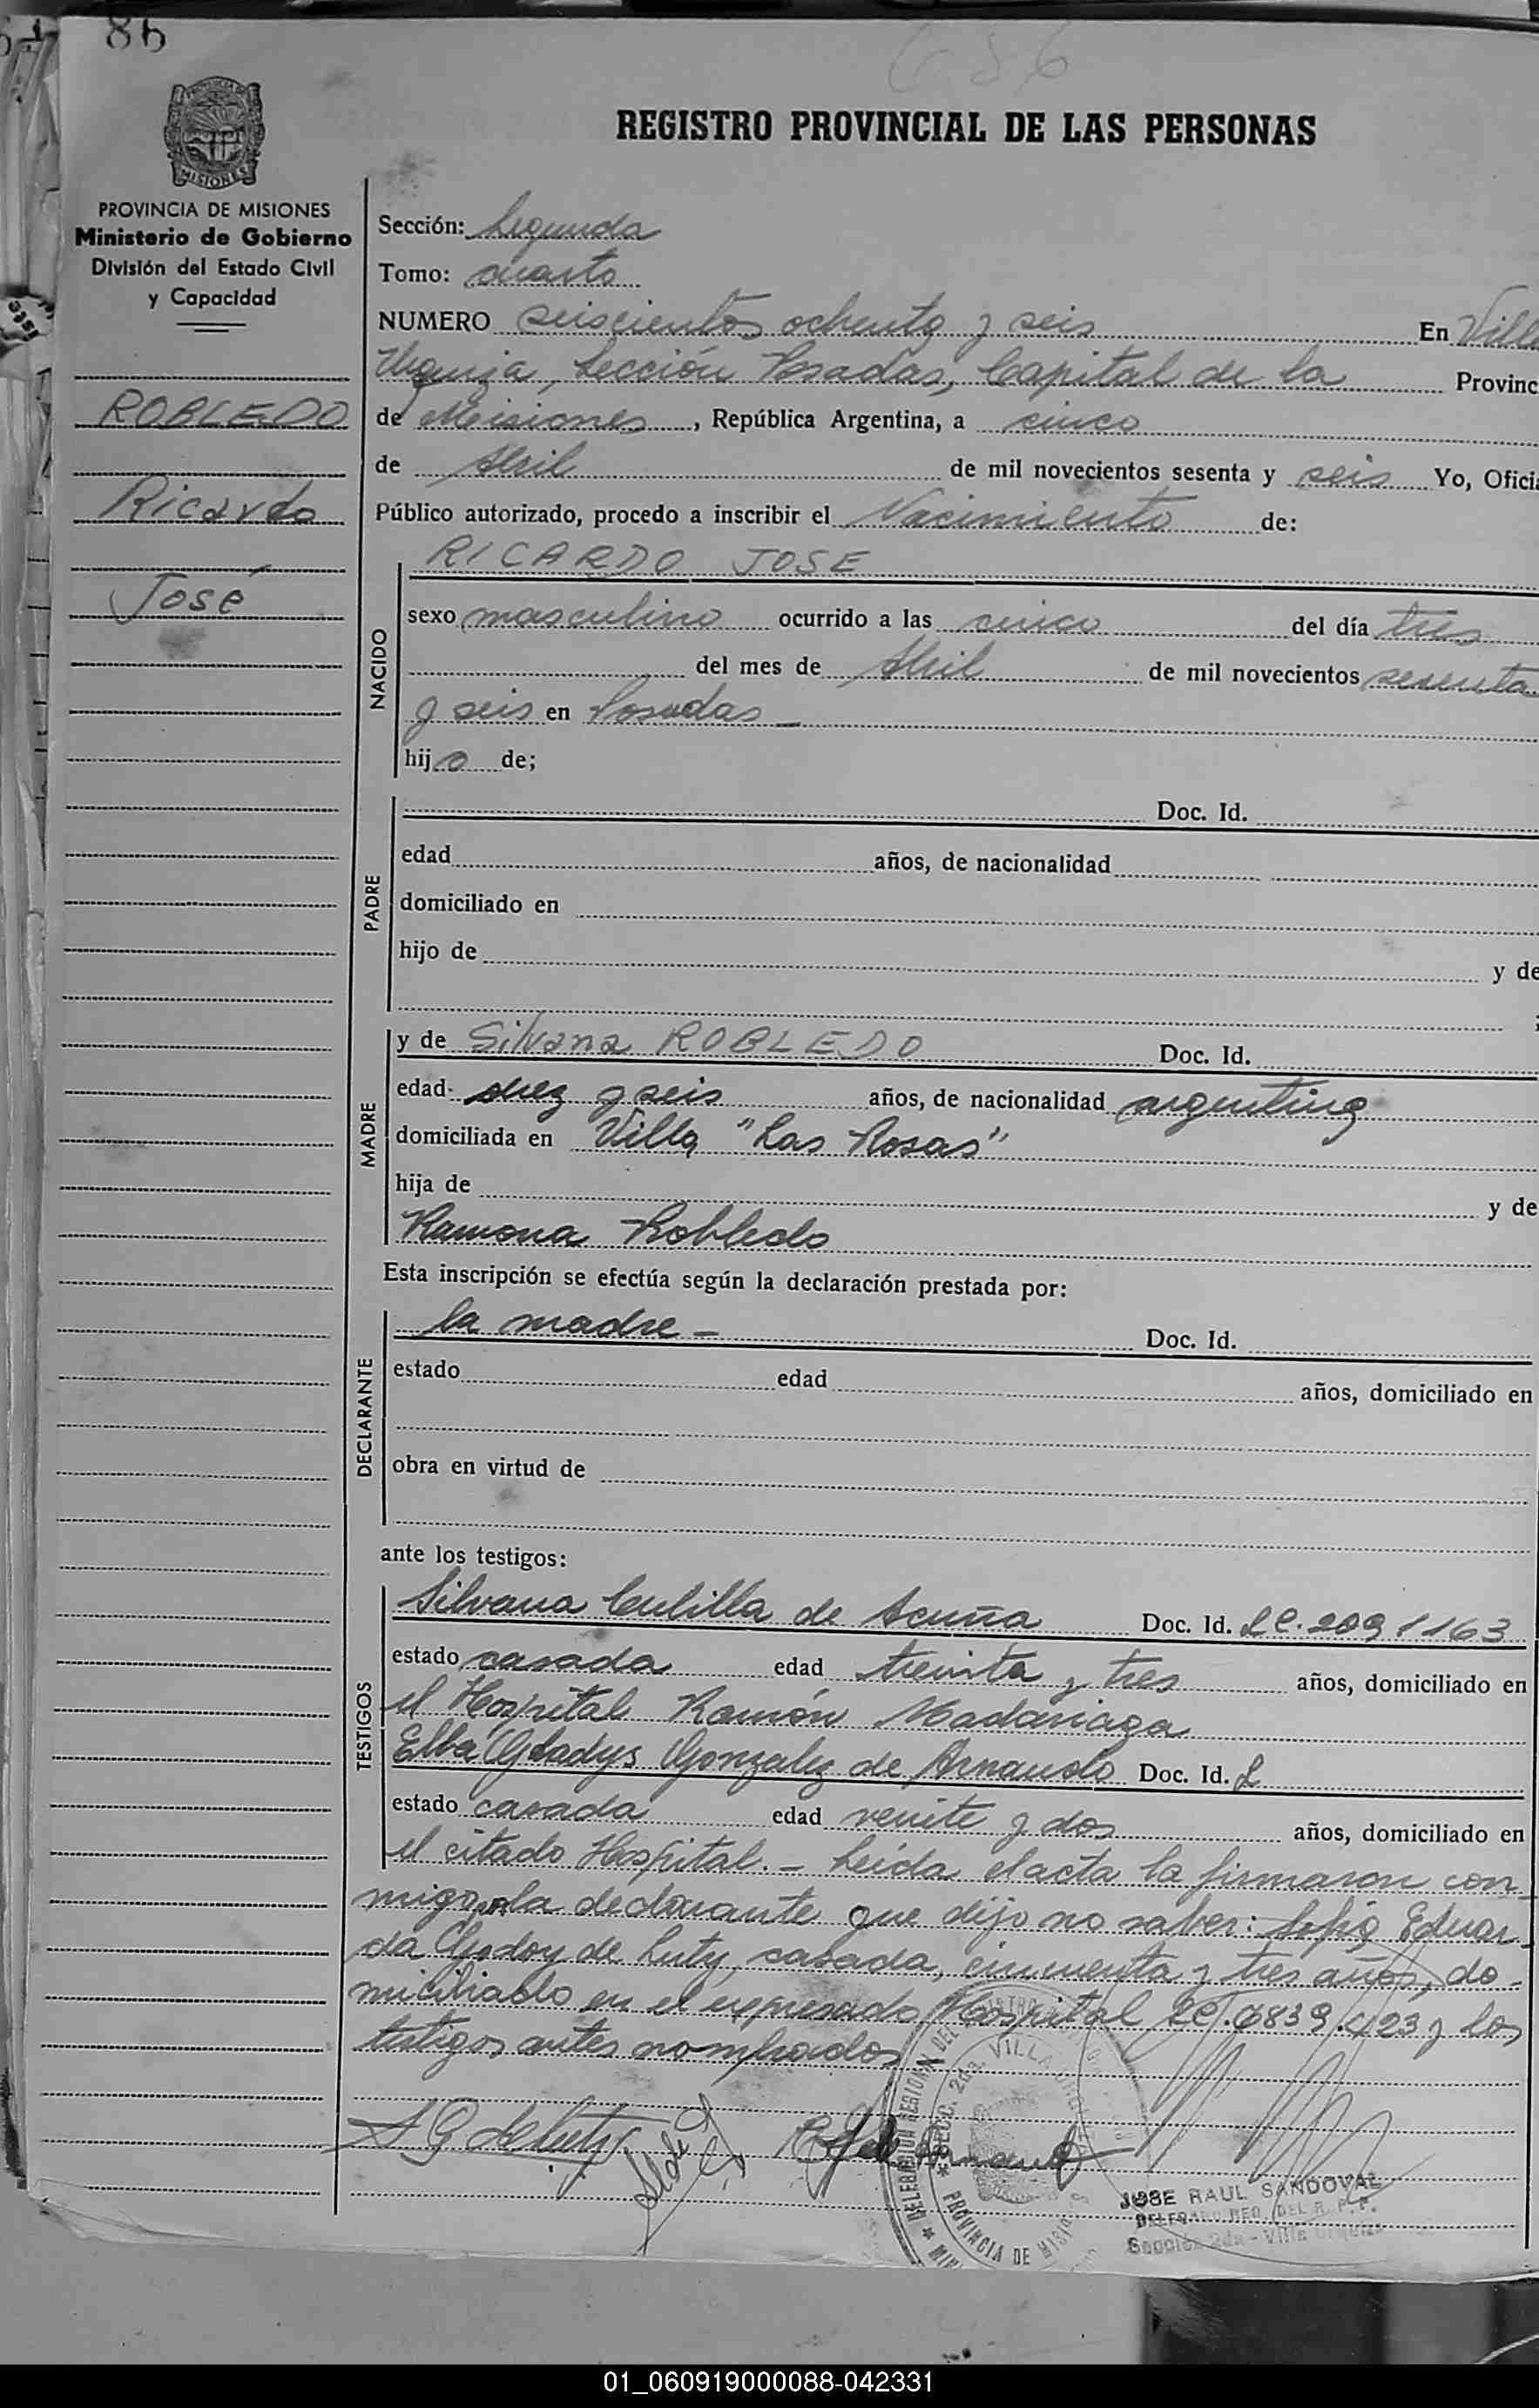 86
686
REGISTRO PROVINCIAL DE LAS PERSONAS
MISIONES
PROVINCIA DE MISIONES
Ministerio de Gobierno
División del Estado Civil
y Capacidad
ROBLEDO
Ricardo
José
Sección: Segunda
Tomo: cuarto
NUMERO seiscientos ochenta y seis En Villa
Urquiza, Sección Posadas, Capital de la Provinc
de Misiones, República Argentina, a cinco
de Abril de mil novecientos sesenta y seis Yo, Oficia
Público autorizado, procedo a inscribir el Nacimiento de:
NACIDO
RICARDO JOSE
sexo masculino ocurrido a las cinco del día tres
del mes de Abril de mil novecientos sesenta
y seis en Posadas
hijo de;
PADRE
Doc. Id.
edad años, de nacionalidad
domiciliado en
hijo de y de
MADRE
y de Silvana ROBLEDO Doc. Id.
edad diez y seis años, de nacionalidad argentina
domiciliada en Villa "Las Rosas"
hija de y de
Ramona Robledo
Esta inscripción se efectúa según la declaración prestada por:
DECLARANTE
la madre - Doc. Id.
estado edad años, domiciliado en
obra en virtud de
ante los testigos:
TESTIGOS
Silvana Culilla de Acuña Doc. Id. LC. 2091163
estado casada edad treinta y tres años, domiciliado en
el Hospital Ramón Madariaga
Elba Gladys Gonzalez de Arnaudo Doc. Id. L
estado casada edad veinte y dos años, domiciliado en
el citado Hospital. - Leída el acta la firmaron con-
migo, la declarante que dijo no saber: Sofia Eduar-
da Godoy de Luty, casada, cincuenta y tres años, do-
miciliado en el expresado Hospital LC. 6839.423 y los
testigos antes nombrados
S G de Luty
de Arnaudo
SECC. 2da. VILLA
PROVINCIA DE MISIONES
JOSE RAUL SANDOVAL
DELEGADO REG. DEL R. P. P.
Sección 2da - Villa Urquiza
01_060919000088-042331